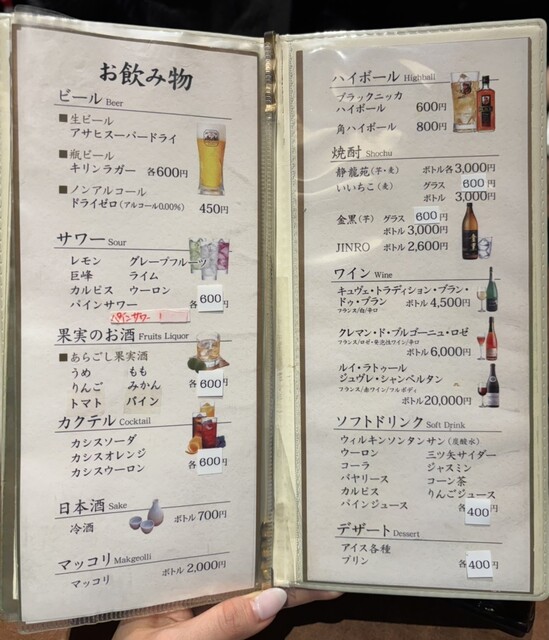 お飲み物
ビール Beer
■生ビール
アサヒスーパードライ
■瓶ビール
キリンラガー 各600円
■ノンアルコール
ドライゼロ(アルコール0.00%) 450円
サワー Sour
レモン グレープフルーツ
巨峰 ライム
カルピス ウーロン
パインサワー 各600円
果実のお酒 Fruits Liquor
■あらごし果実酒
うめ もも
りんご みかん 各600円
トマト パイン
カクテル Cocktail
カシスソーダ
カシスオレンジ
カシスウーロン 各600円
日本酒 Sake
冷酒 ボトル700円
マッコリ Makgeolli
マッコリ ボトル2,000円
ハイボール Highball
ブラックニッカ
ハイボール 600円
角ハイボール 800円
焼酎 Shochu
静龍苑(芋・麦) ボトル各3,000円
いいちこ(麦) グラス 600円
ボトル 3,000円
金黒(芋) グラス 600円
ボトル 3,000円
JINRO ボトル 2,600円
ワイン Wine
キュヴェ・トラディション・ブラン・
ドゥ・ブラン ボトル 4,500円
フランス/白/辛口
クレマン・ド・ブルゴーニュ・ロゼ
フランス/ロゼ・発泡性ワイン/辛口
ボトル 6,000円
ルイ・ラトゥール
ジュヴレ・シャンベルタン
フランス/赤ワイン/フルボディ
ボトル 20,000円
ソフトドリンク Soft Drink
ウィルキンソンタンサン(炭酸水)
ウーロン 三ツ矢サイダー
コーラ ジャスミン
バヤリース コーン茶
カルピス りんごジュース
パインジュース 各400円
デザート Dessert
アイス各種
プリン 各400円